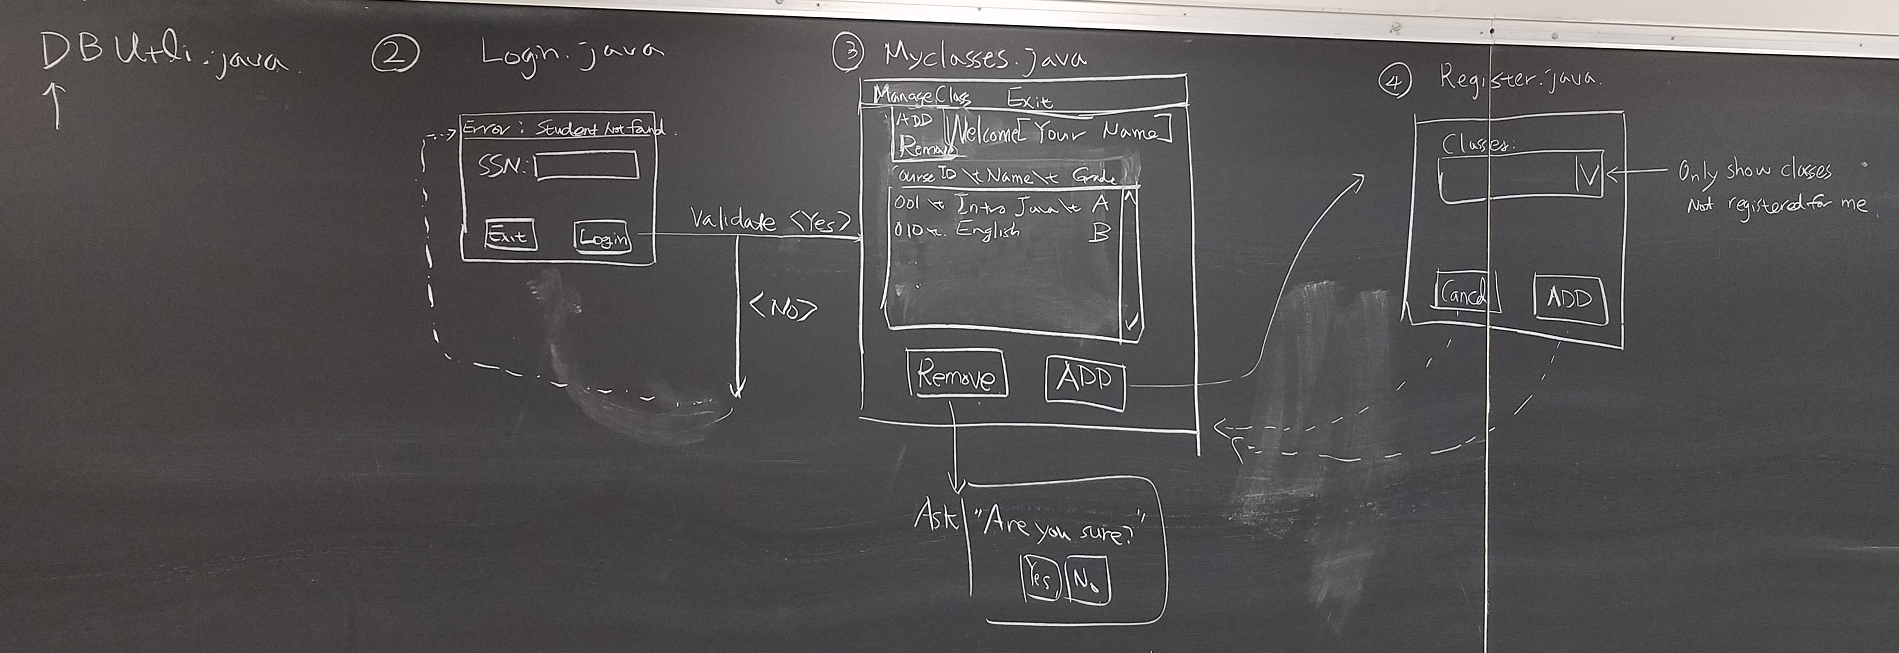 DB Utli.java.
② Login.java
Error: Student Not found.
SSN:
Exit Login
Validate <Yes>
<No>
③ Myclasses.java
Manage Class Exit
ADD
Remove
Welcome [Your Name]
Course ID \t Name \t Grade
001 \t Intro Java \t A
010 \t. English B
Remove ADD
Ask "Are you sure?"
Yes No
④ Register.java.
Classes:
V
Only show classes
Not registered for me.
Cancel ADD